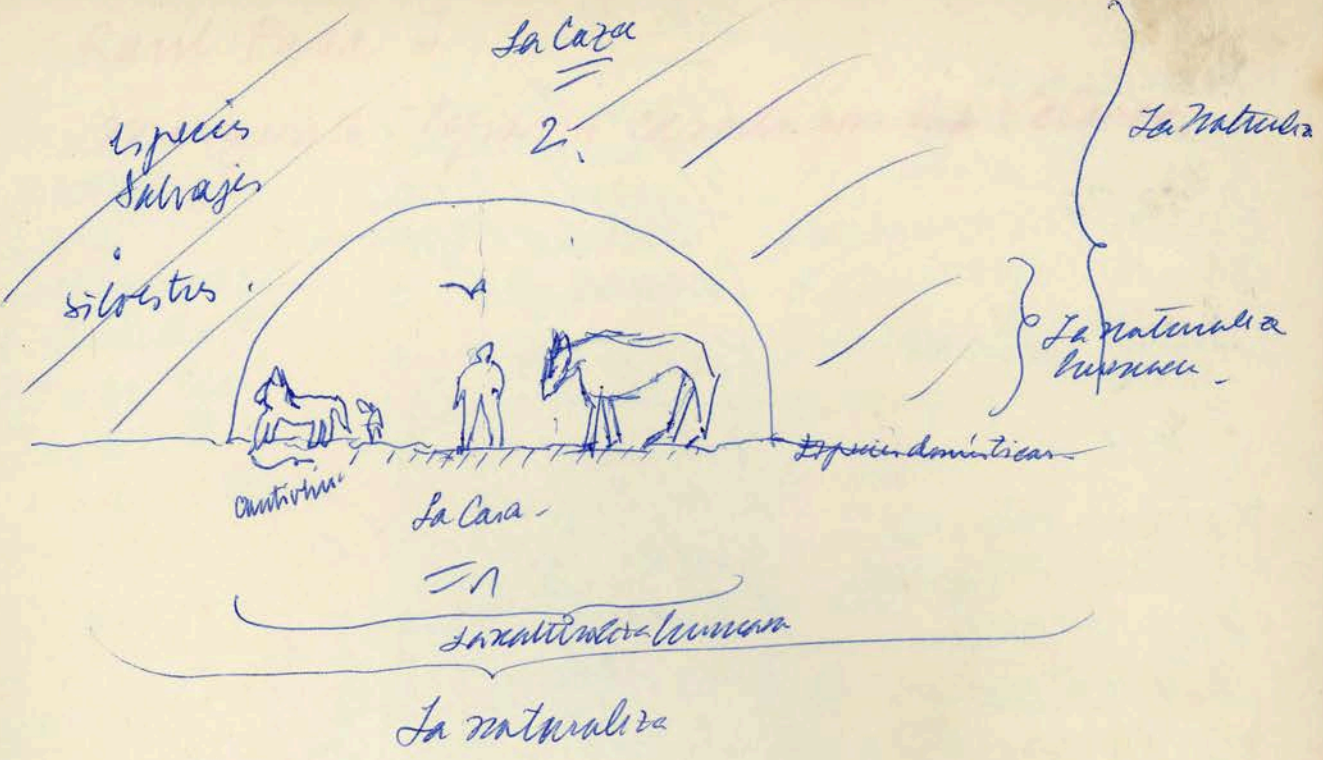 La Caza
2.
especies
salvajes
o
silvestres.
La naturaleza
La naturaleza
humana -
Especies domésticas
La Casa -
= 1
La naturaleza humana
La naturaleza